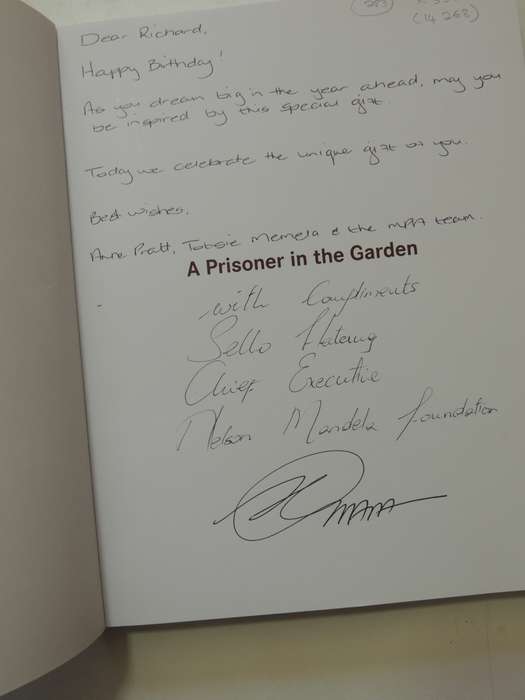 (14 268)
Dear Richard,
Happy Birthday!
As you dream big in the year ahead, may you
be inspired by this special gift.
Today we celebrate the unique gift of you.
Best wishes,
Anne Pratt, Totsie Memela & the MPA team.
A Prisoner in the Garden
with Compliments
Sello Hatang
Chief Executive
Nelson Mandela Foundation